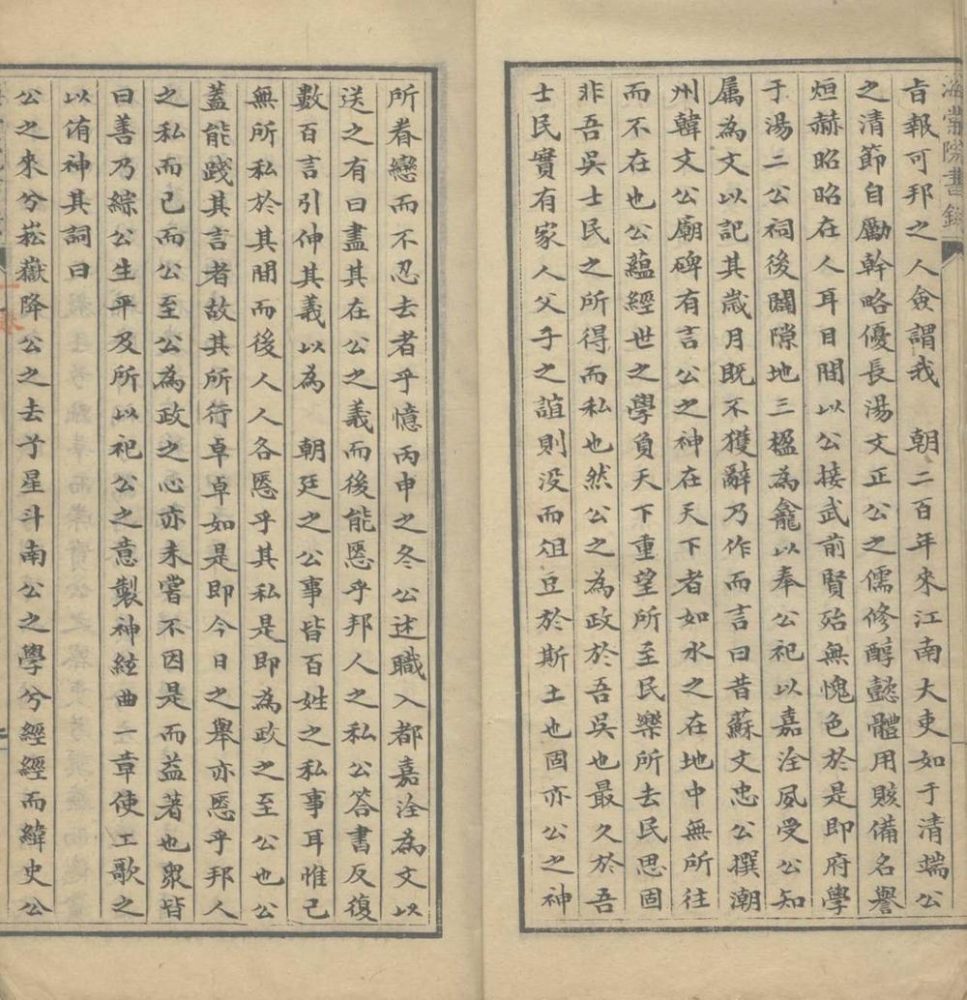 旨報可邦之人僉謂我　朝二百年來江南大吏如于清端公
之清節自勵幹略優長湯文正公之儒修醇懿體用賅備名譽
烜赫昭昭在人耳目間以公接武前賢殆無愧色於是即府學
于湯二公祠後闢隙地三楹為龕以奉公祀以嘉淦夙受公知
屬為文以記其歲月既不獲辭乃作而言曰昔蘇文忠公撰潮
州韓文公廟碑有言公之神在天下者如水之在地中無所往
而不在也公蘊經世之學負天下重望所至民樂所去民思固
非吾吳士民之所得而私也然公之為政於吾吳也最久於吾
士民實有家人父子之誼則沒而俎豆於斯土也固亦公之神
所眷戀而不忍去者乎憶丙申之冬公述職入都嘉淦為文以
送之有曰盡其在公之義而後能慝乎邦人之私公答書反復
數百言引伸其義以為　朝廷之公事皆百姓之私事耳惟己
無所私於其間而後人人各慝乎其私是即為政之至公也公
蓋能踐其言者故其所行卓卓如是即今日之舉亦慝乎邦人
之私而已而公至公為政之心亦未嘗不因是而益著也眾皆
曰善乃綜公生平及所以祀公之意製神絃曲一章使工歌之
以侑神其詞曰
公之來兮崧嶽降公之去兮星斗南公之學兮經經而緯史公